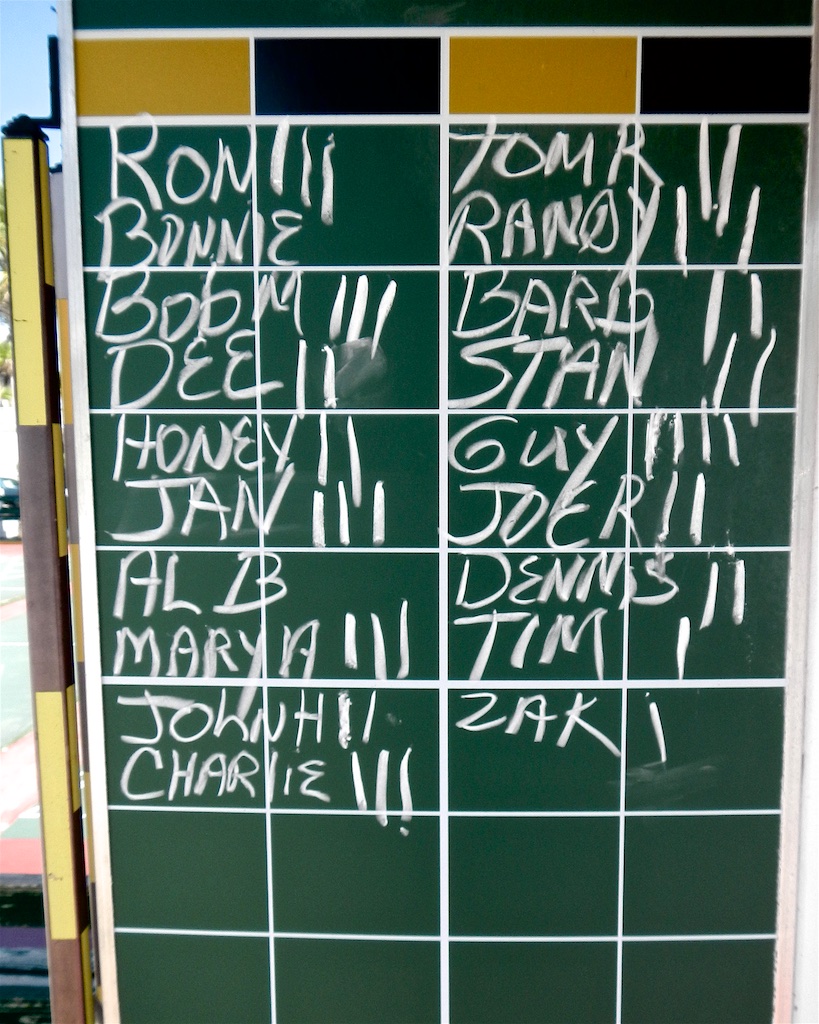 RON III
BONNIE
BOB M III
DEE II
HONEY II
JAN III
AL B
MARY A III
JOHN H II
CHARLIE III
TOM R II
RANDY II
BARB II
STAN II
GUY IIII
JOE R II
DENNIS II
TIM I
ZAK I